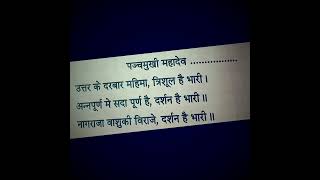 पञ्चमुखी महादेव ..................
उत्तर के दरबार महिमा, त्रिशूल है भारी ।
अन्नपूर्ण मे सदा पूर्ण है, दर्शन है भारी ॥
नागराजा वाशुकी विराजे, दर्शन है भारी ॥